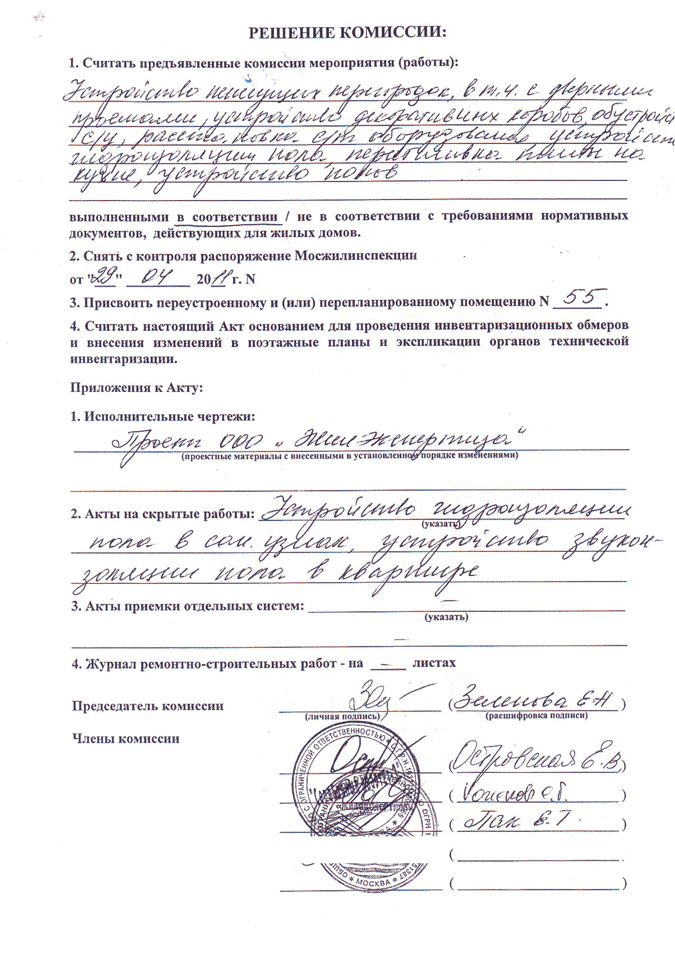 РЕШЕНИЕ КОМИССИИ:
1. Считать предъявленные комиссии мероприятия (работы):
Устройство ненесущих перегородок, в т.ч. с дверными
проемами, устройство декоративных коробов, обустройс
с/у, расстановка с/т оборудования, устройст
гидроизоляции пола, плиты на
кухне, устройство полов
выполненными в соответствии / не в соответствии с требованиями нормативных
документов, действующих для жилых домов.
2. Снять с контроля распоряжение Мосжилинспекции
от "29" 04 2011 г. N
3. Присвоить переустроенному и (или) перепланированному помещению N 55.
4. Считать настоящий Акт основанием для проведения инвентаризационных обмеров
и внесения изменений в поэтажные планы и экспликации органов технической
инвентаризации.
Приложения к Акту:
1. Исполнительные чертежи:
Проект ООО „ЖилЭкспертиза“
(проектные материалы с внесенными в установленном порядке изменениями)
2. Акты на скрытые работы: Устройство гидроизоляции
(указать)
пола в сан. узлах, устройство звукои-
золяции пола в квартире
3. Акты приемки отдельных систем: —
(указать)
—
4. Журнал ремонтно-строительных работ - на — листах
Председатель комиссии (Зеленова Е.Н)
(личная подпись) (расшифровка подписи)
Члены комиссии
(Островская Е.В)
(Пак Е.Т.)
С ОГРАНИЧЕННОЙ ОТВЕТСТВЕННОСТЬЮ
МОСКВА